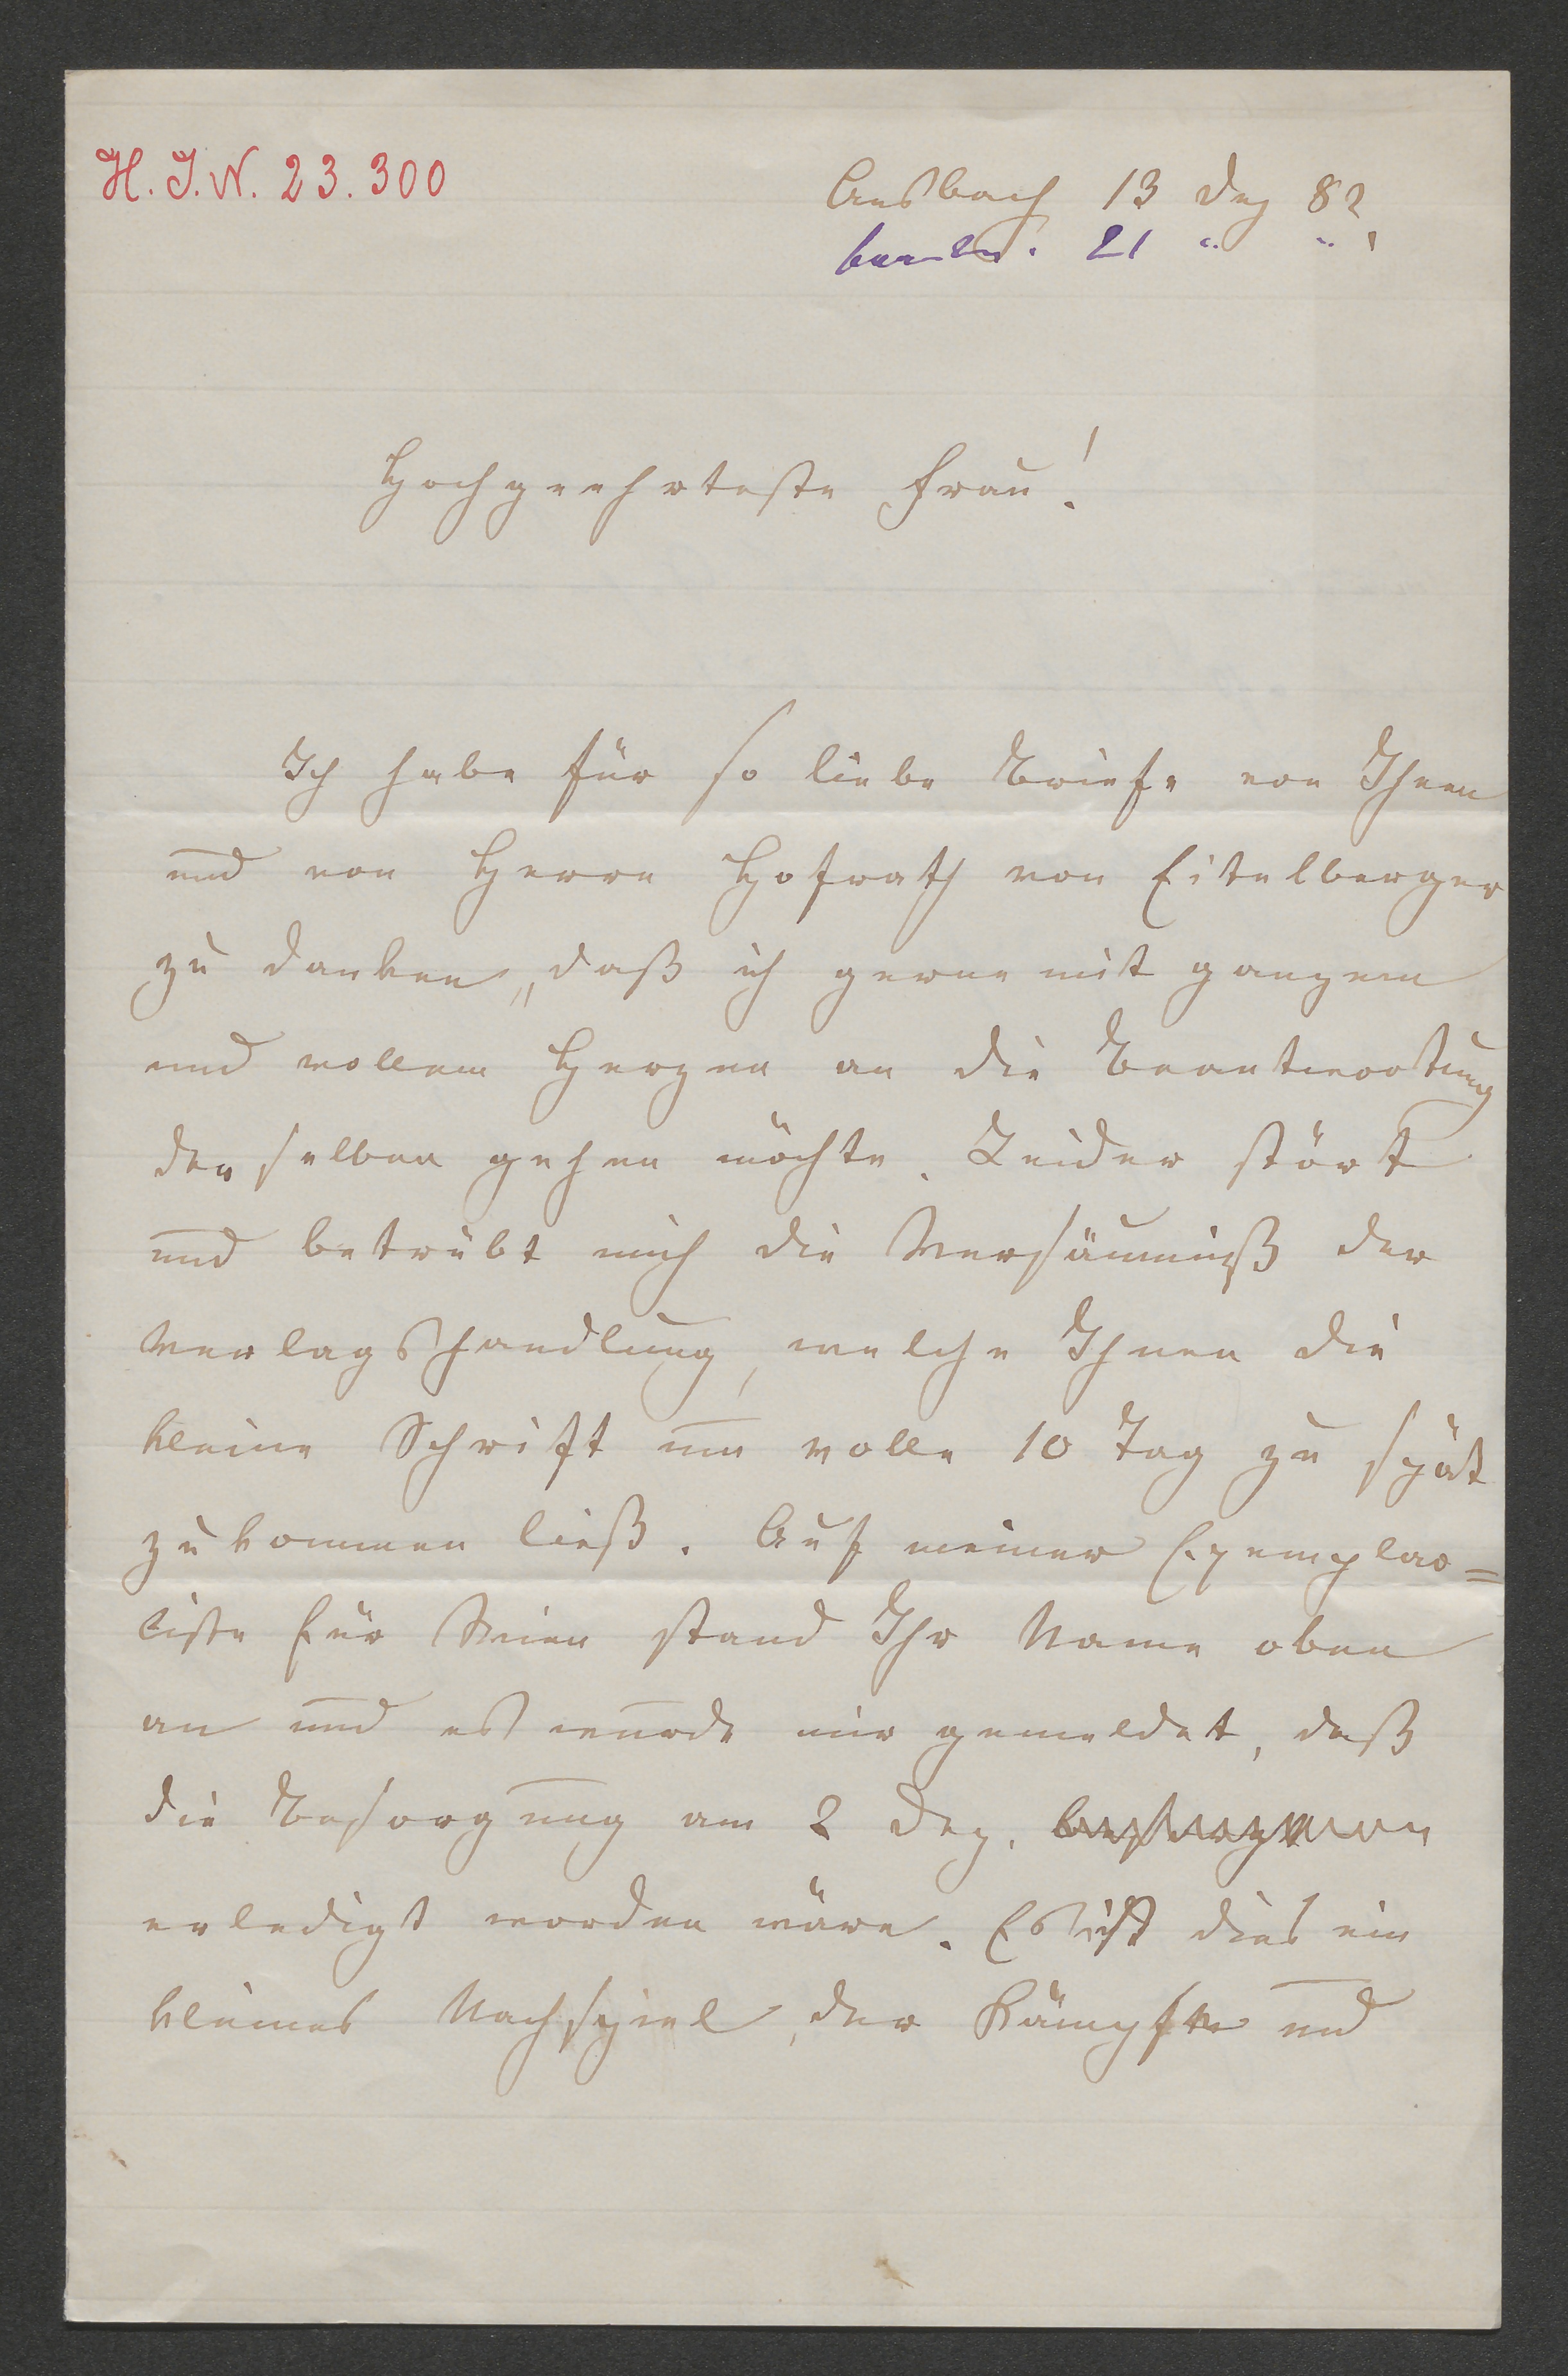 H. I. N. 23.300
Ansbach 13 Dez 82
beantw. 21 " "
Hochgeehrteste Frau!
Ich habe für so liebe Briefe von Ihnen
und von Herrn Hofrath von Eitelberger
zu danken, daß ich gerne mit ganzem
und vollem Herzen an die Beantwortung
derselben gehen möchte. Leider stört
und betrübt mich die Versäumniß der
Verlagshandlung, welche Ihnen die
kleine Schrift um volle 10 Tag zu spät
zukommen ließ. Auf meiner Exemplar=
liste für Wien stand Ihr Name oben
an und es wurde mir gemeldet, daß
die Besorgung am 2 Dez.
erledigt worden wäre. Es ist dies ein
kleines Nachspiel, der Kämpfe und